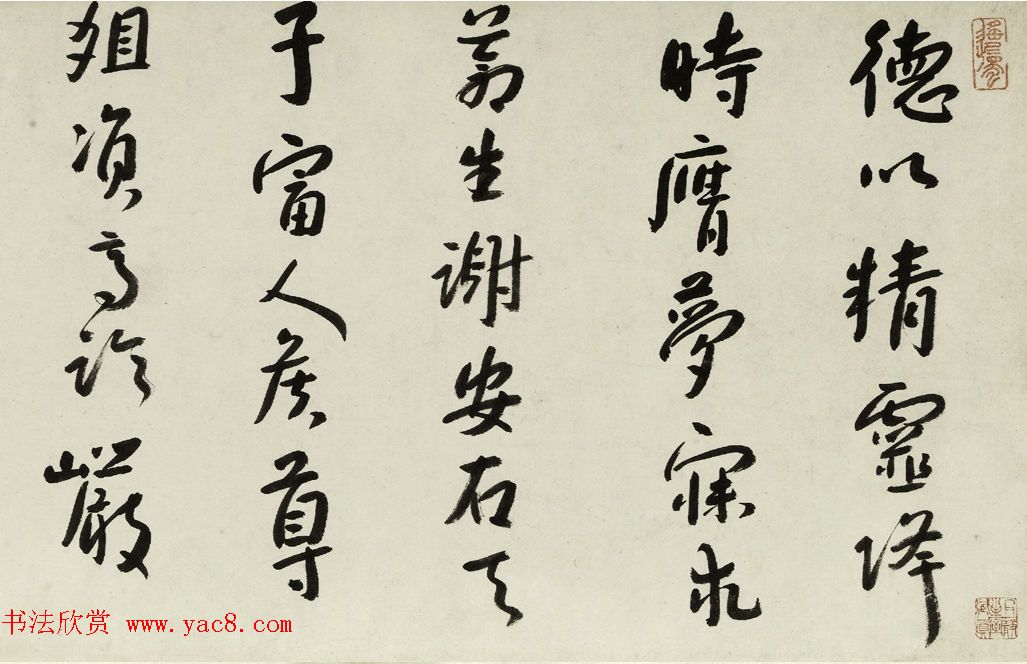 德以精靈降
時膺夢寐求
蒼生謝安石天
子富人侯尊
俎資高論巖
书法欣赏 www.yac8.com